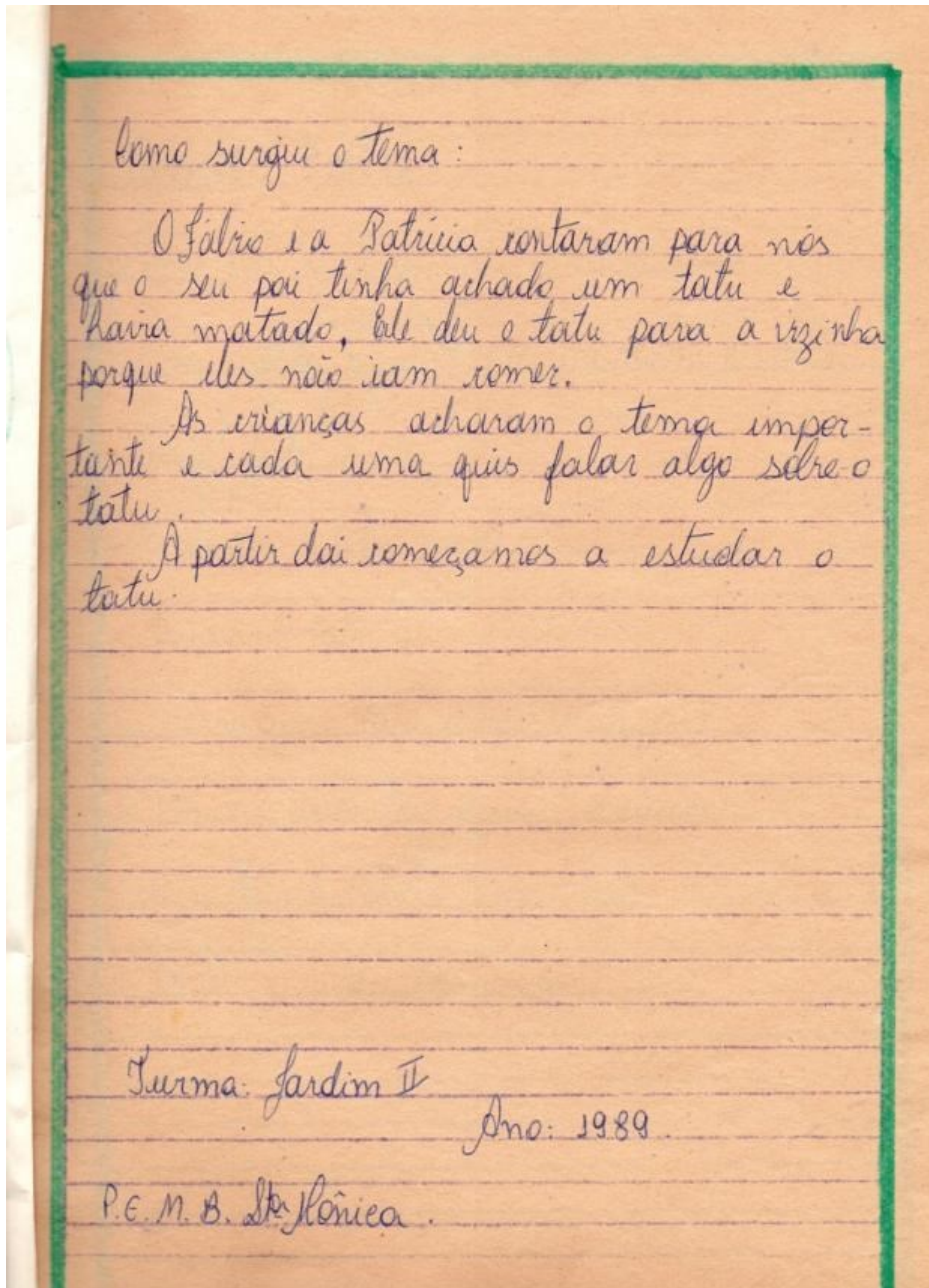 Como surgiu o tema:
O Fábio e a Patrícia contaram para nós
que o seu pai tinha achado um tatu e
havia matado. Ele deu o tatu para a vizinha
porque eles não iam comer.
As crianças acharam o tema impor-
tante e cada uma quis falar algo sobre o
tatu.
A partir daí começamos a estudar o
tatu.
Turma: Jardim II
Ano: 1989.
P.E.M.B. Sta Mônica.